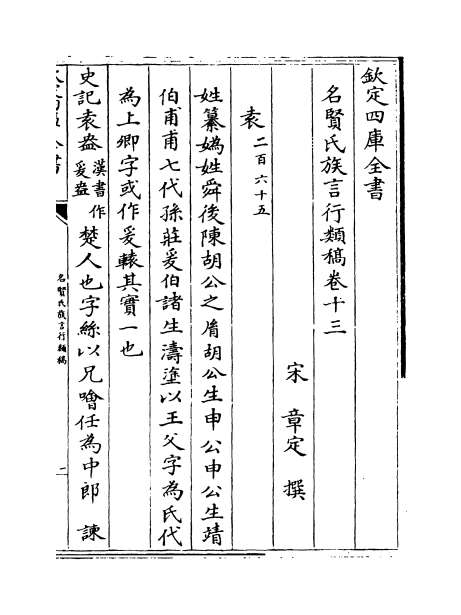 欽定四庫全書
名賢氏族言行類稿卷十三
宋 章定 撰
袁 二百六十五
姓纂媯姓舜後陳胡公之裔胡公生申公申公生靖
伯甫甫七代孫莊爰伯諸生濤塗以王父字為氏代
為上卿字或作爰轅其實一也
史記袁盎漢書作爰盎楚人也字絲以兄噲任為中郎 諫
名賢氏族言行類稿